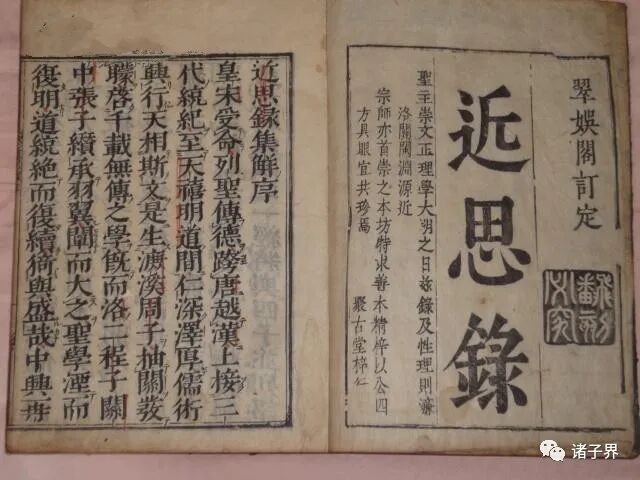 翠娛閣訂定
翻刻必究
近思錄
聖主崇文正理學大明之日茲錄及性理則濂
洛關閩淵源近
宗師亦首崇之本坊特求善本精梓以公四
方具眼宜共珍焉 聚古堂梓行
近思錄集解序
皇宋受命列聖傳德跨唐越漢上接三
代統紀至天禧明道間仁深澤厚儒術
興行天相斯文是生濂溪周子抽關發
矇啓千載無傳之學旣而洛二程子關
中張子纘承羽翼闡而大之聖學湮而
復明道統絶而復續猗與盛哉中興再
诸子界